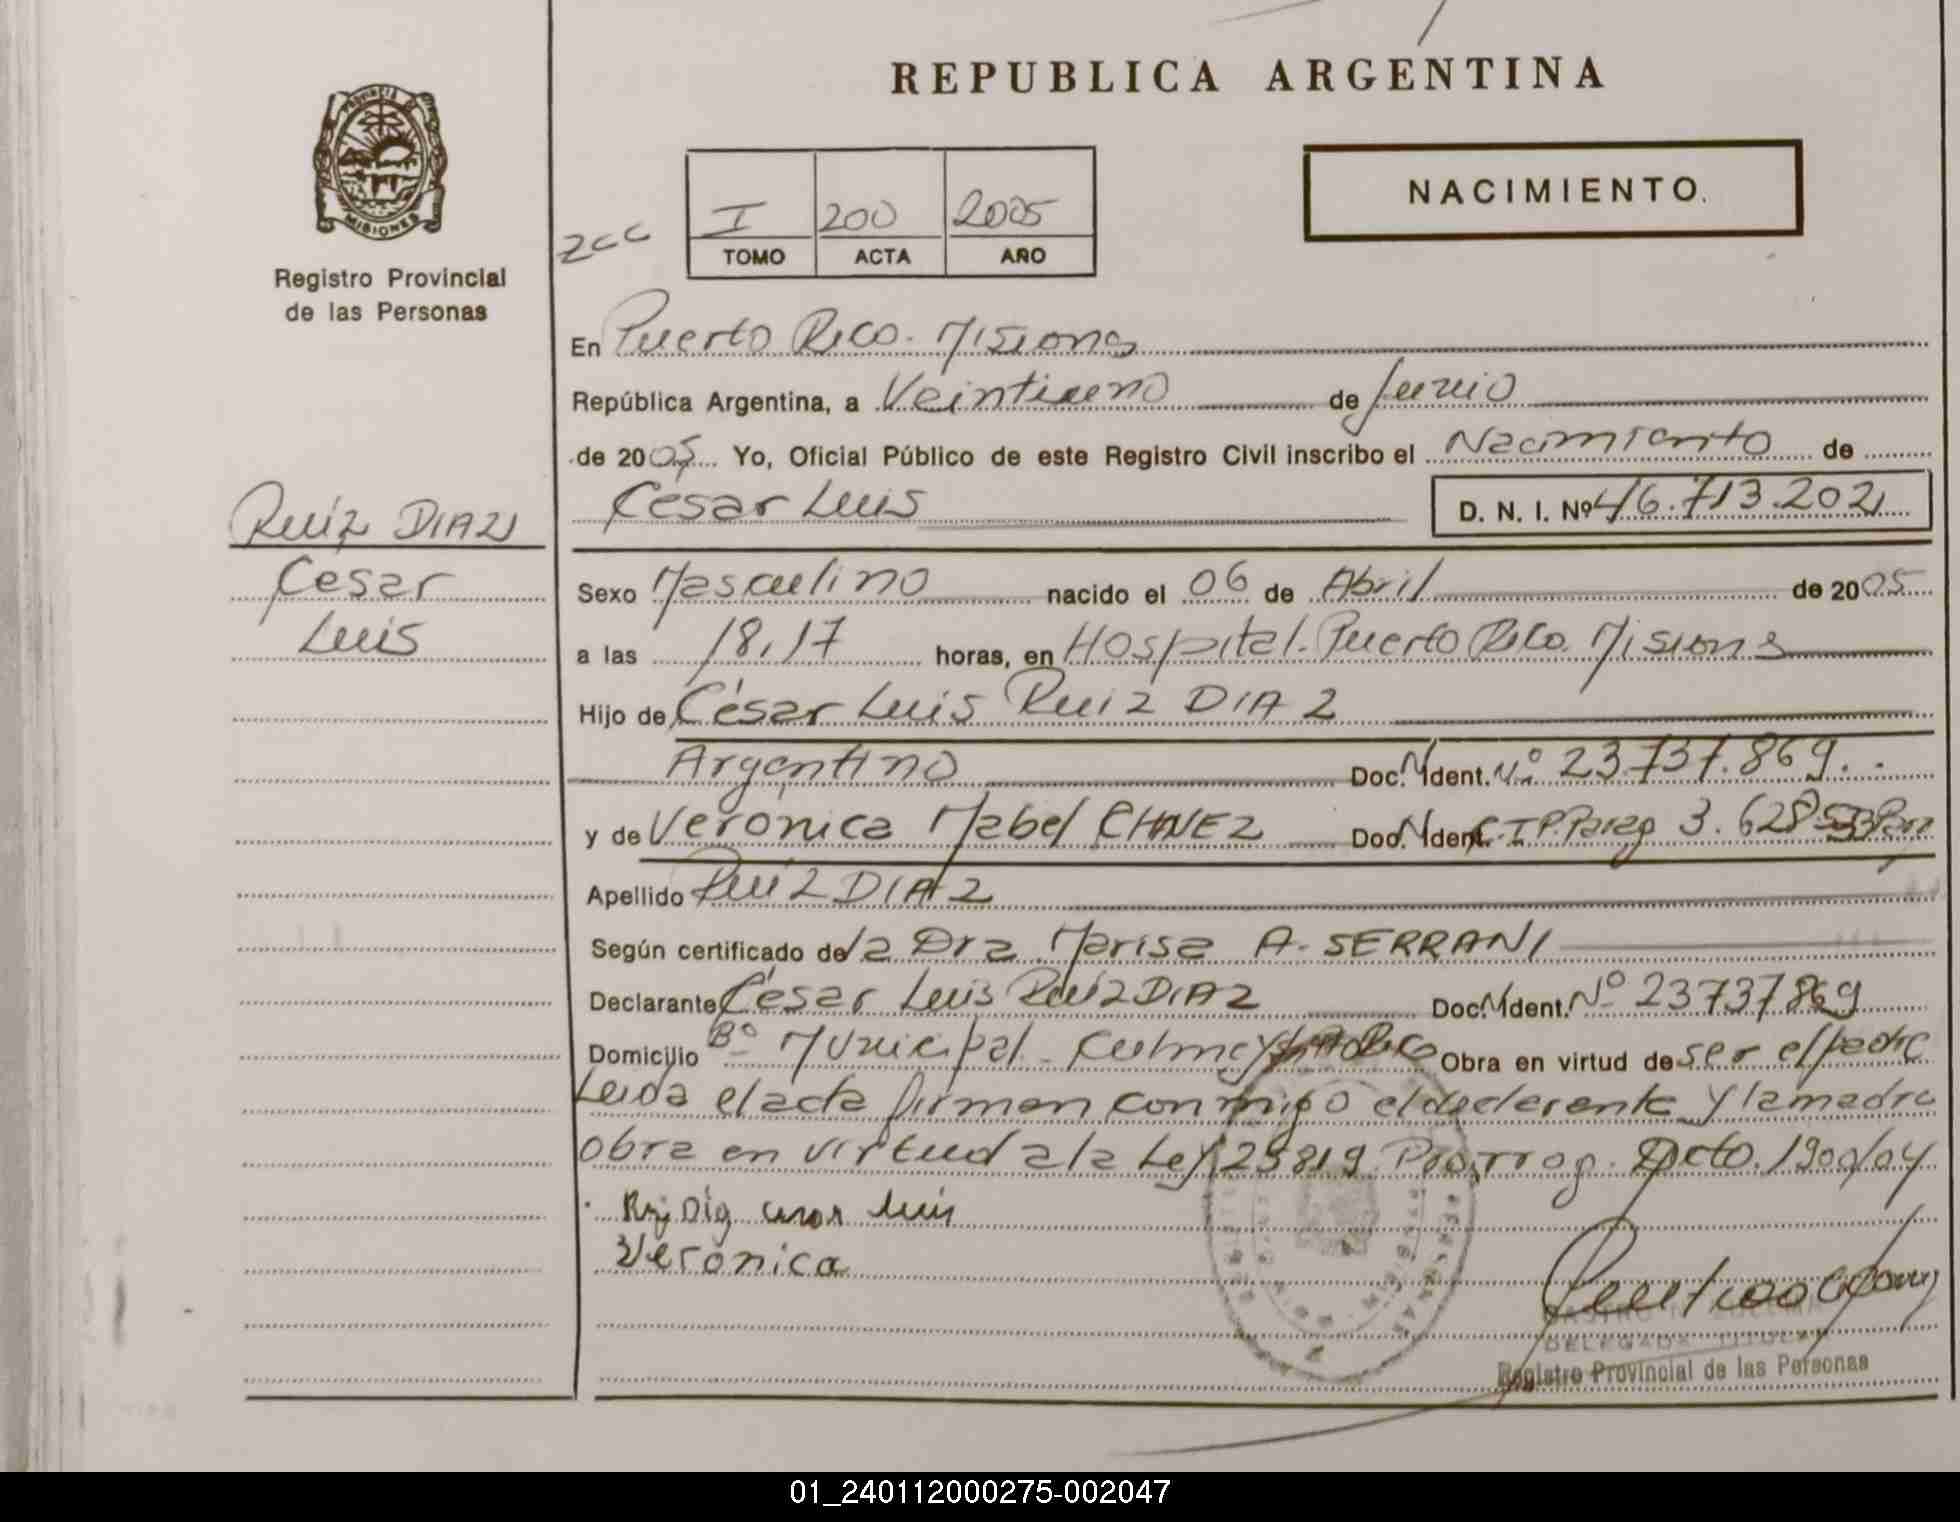 REPUBLICA ARGENTINA
PROVINCIA DE
MISIONES
Registro Provincial
de las Personas
NACIMIENTO.
I 200 2005
TOMO ACTA AÑO
En Puerto Rico. Misiones
República Argentina, a Veintiuno de Junio
de 2005 Yo, Oficial Público de este Registro Civil inscribo el Nacimiento de
César Luis D. N. I. Nº 46.713.202
Ruíz DIAZ
César
Luis
Sexo Masculino nacido el 06 de Abril de 2005
a las 18,17 horas, en Hospital. Puerto Rico. Misiones
Hijo de César Luis Ruiz DIAZ
Argentino Doc. Ident. Nº 23.737.869.
y de Verónica Mabel CHAVEZ Doc. Ident. C.I.P. Parag 3.628
Apellido Ruíz DIAZ
Según certificado de la Dra. Marisa A. SERRANI
Declarante César Luis Ruíz DIAZ Doc. Ident. Nº 23737869
Domicilio Bº Municipal - Obra en virtud de ser el padre
Leida el acta firman conmigo el declarante y la madre
obra en virtud a la Ley 25819. Prorrog. Dcto. 1900/04
Luis
Verónica
DELEGADA TITULAR
Registro Provincial de las Personas
01_240112000275-002047